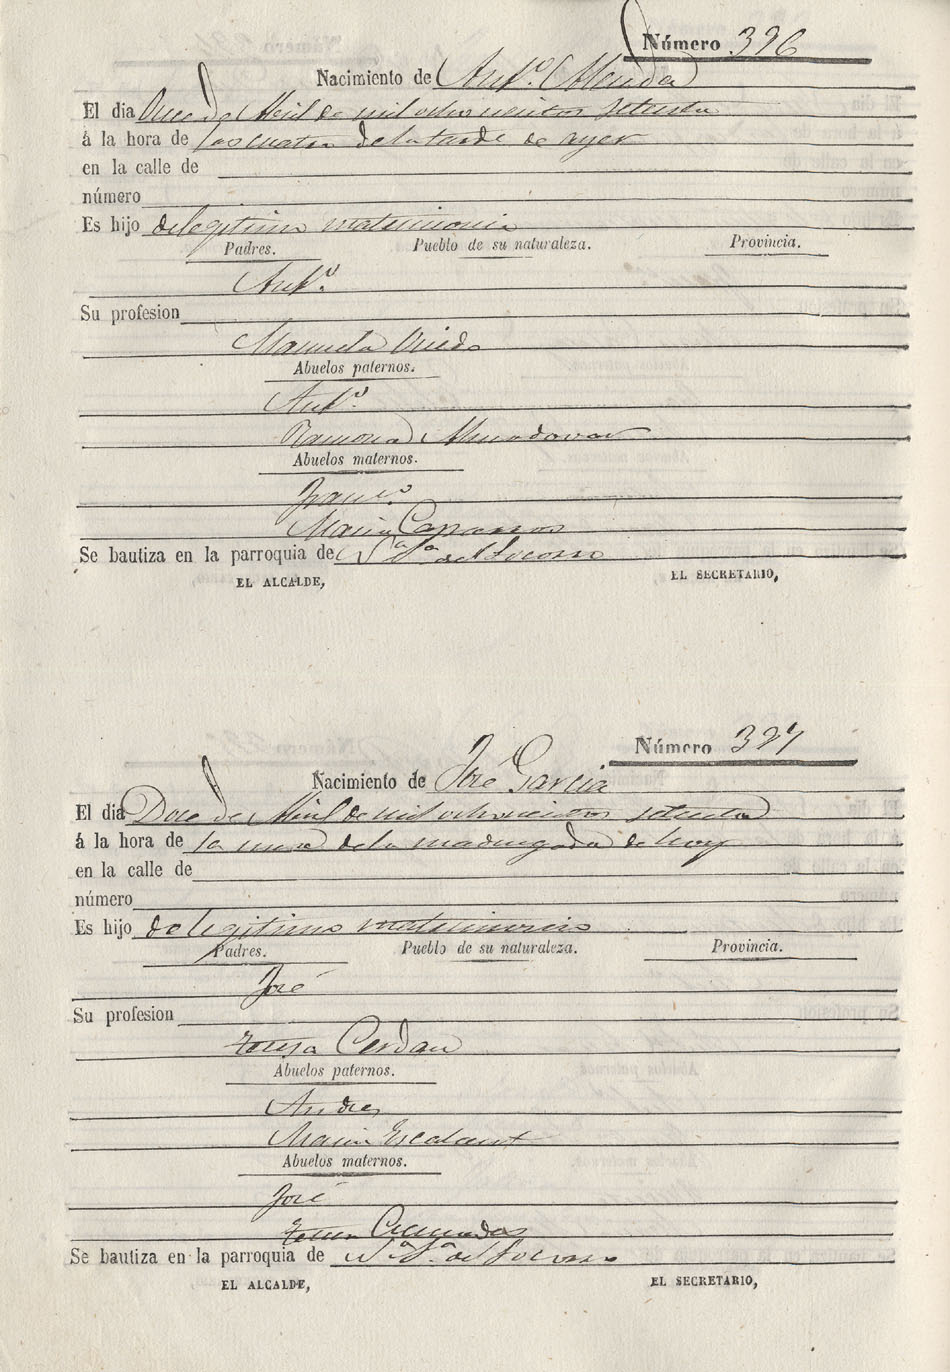 Número 396
Nacimiento de Antº.
El dia Once de Abril de mil ochocientos setenta
á la hora de las cuatro de la tarde de ayer
en la calle de
número
Es hijo de legitimo matrimonio
Padres. Pueblo de su naturaleza. Provincia.
Antº.
Su profesion
Manuela Oviedo
Abuelos paternos.
Antº.
Ramona Almodovar
Abuelos maternos.
Francº.
Maria Caparros
Se bautiza en la parroquia de Nª Sª del Socorro
EL ALCALDE, EL SECRETARIO,
Número 397
Nacimiento de José Garcia
El dia Doce de Abril de mil ochocientos setenta
á la hora de la una de la madrugada de hoy
en la calle de
número
Es hijo de legitimo matrimonio
Padres. Pueblo de su naturaleza. Provincia.
José
Su profesion
Teresa Cerdan
Abuelos paternos.
Andres
Maria Escalant
Abuelos maternos.
José
Teresa
Se bautiza en la parroquia de Nª Sª del Socorro
EL ALCALDE, EL SECRETARIO,